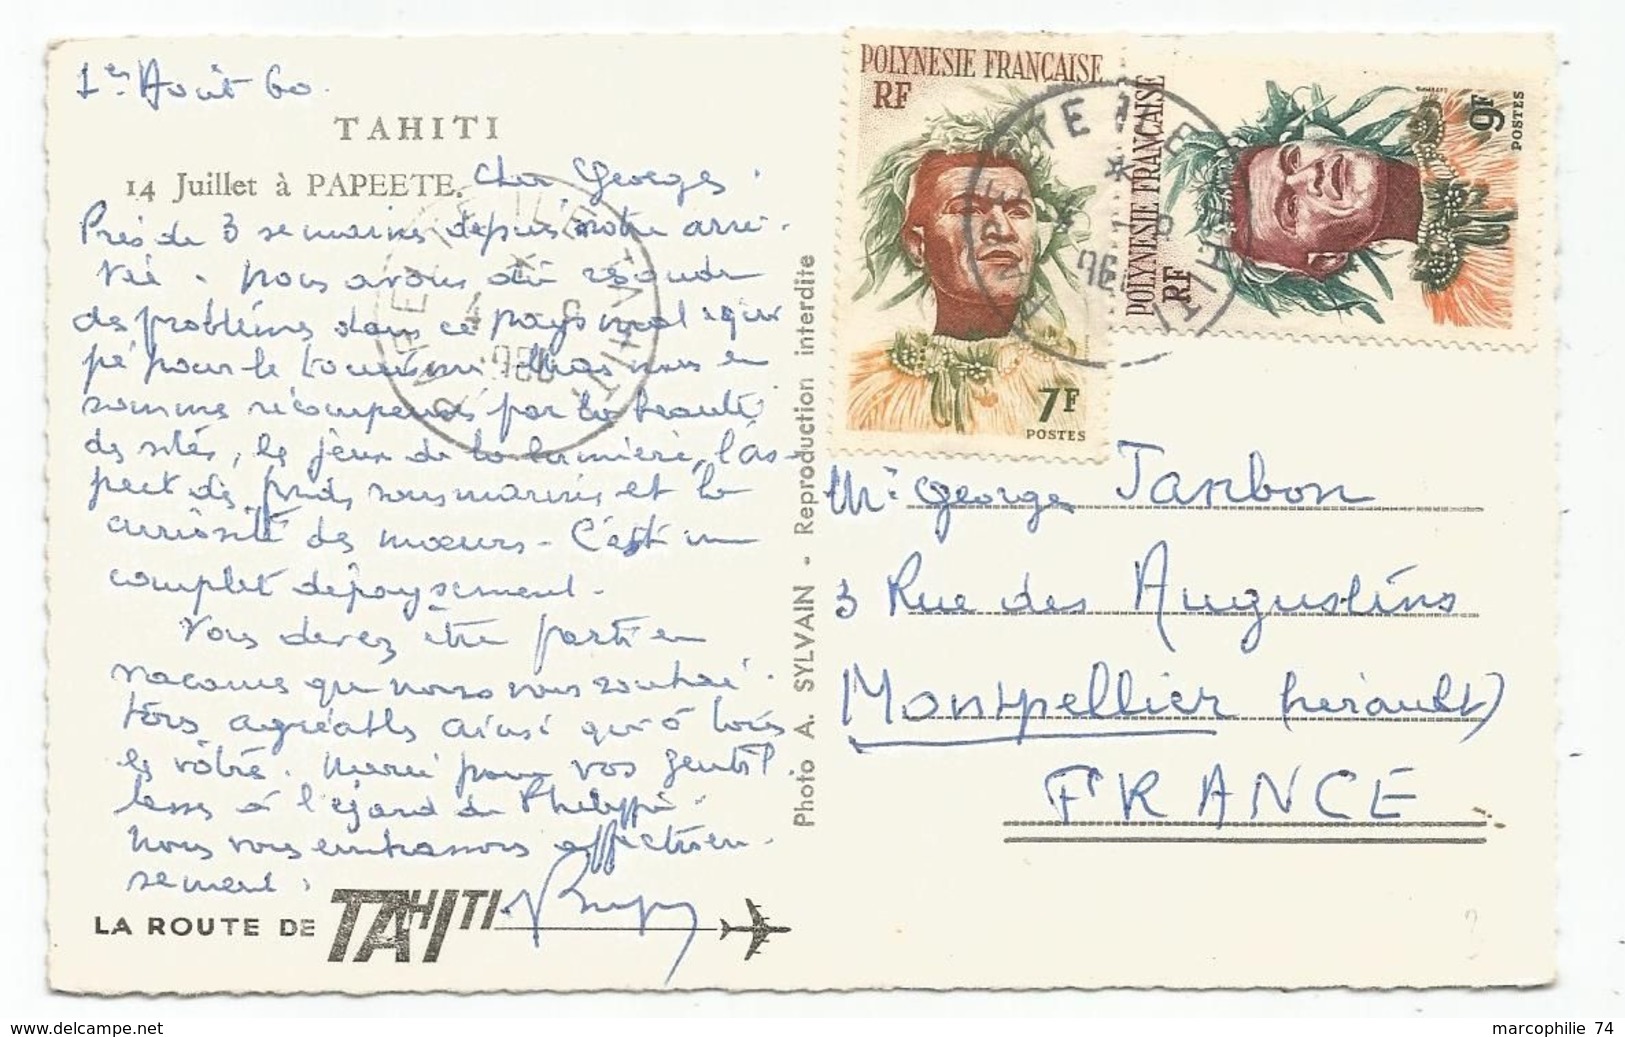 1er Août 60.
TAHITI
14 Juillet à PAPEETE.
Cher Georges,
Près de 3 semaines depuis notre arri-
vée. Nous avons dû résoudre
des problèmes dans ce pays mal équi
pé pour le tourisme. Mais nous en
sommes récompensés par la beauté
des sites, les jeux de la lumière, l'as-
pect des fonds sous marins et la
curiosité des mœurs - C'est un
complet dépaysement.
Vous devez être parti en
vacances que nous vous souhai-
tons agréables ainsi qu'à tous
les vôtres. Merci pour vos gentil
lesses à l'égard de Philippe.
Nous vous embrassons affectueu-
sement.
LA ROUTE DE TAHITI
Photo A. SYLVAIN - Reproduction interdite
POLYNESIE FRANÇAISE
RF
7F
POSTES
POLYNESIE FRANÇAISE
RF
9F
POSTES
PAPEETE ILE TAHITI
Mr Georges Janbon
3 Rue des Augustins
Montpellier (Hérault)
FRANCE
marcophilie 74